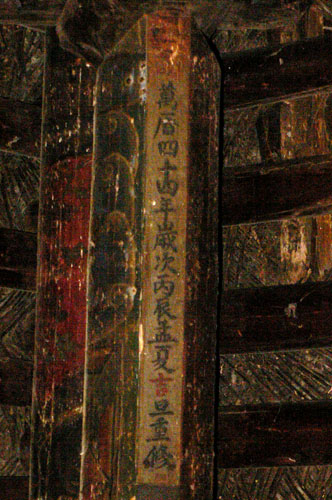 萬曆四十四年歲次丙辰孟夏吉旦重修